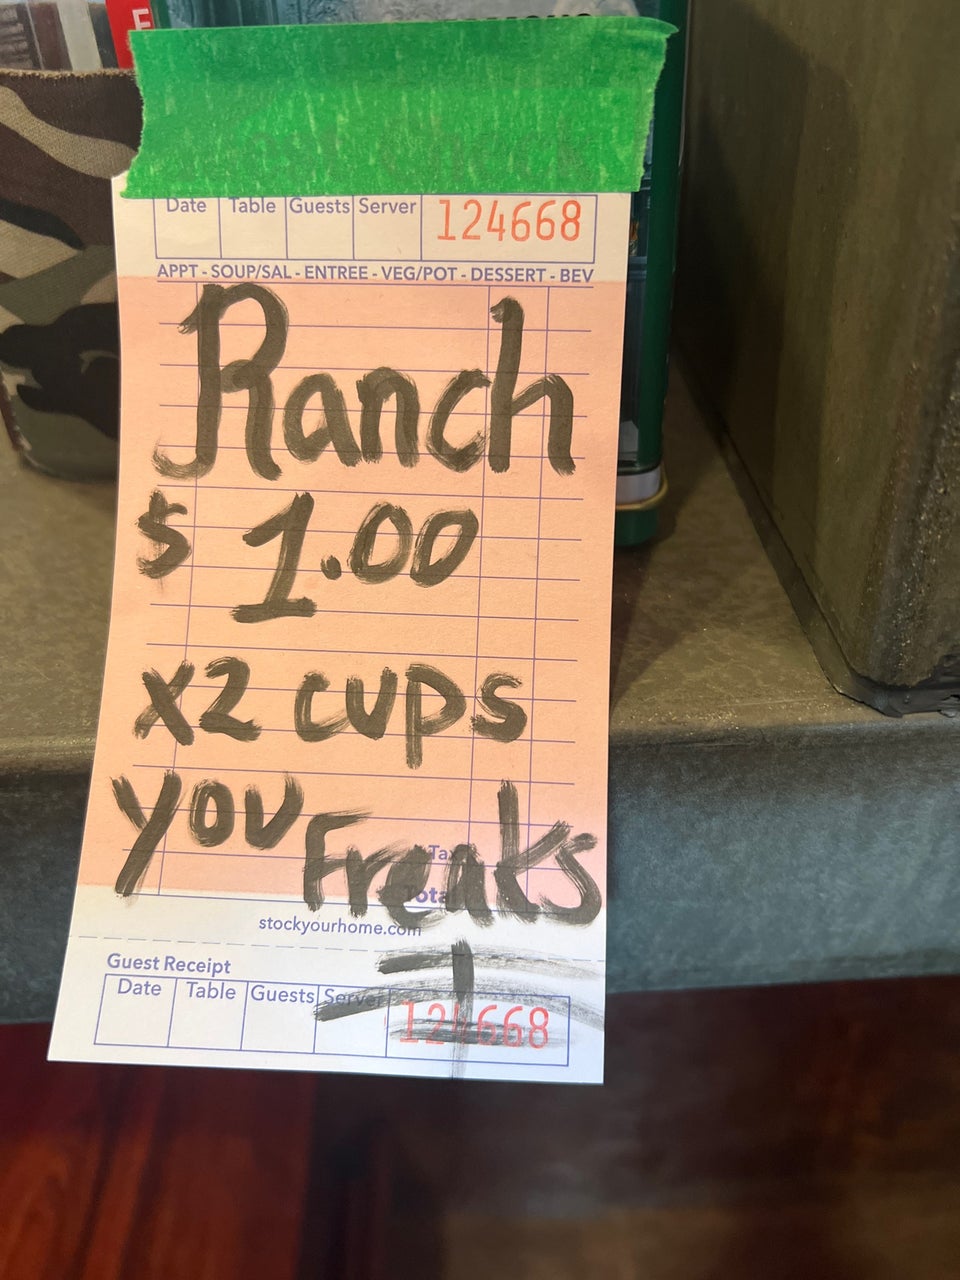 Date Table Guests Server 124668
APPT - SOUP/SAL - ENTREE - VEG/POT - DESSERT - BEV
Ranch
$ 1.00
x2 cups
you
Freaks
Tax
Total
stockyourhome.com
Guest Receipt
Date Table Guests Server 124668